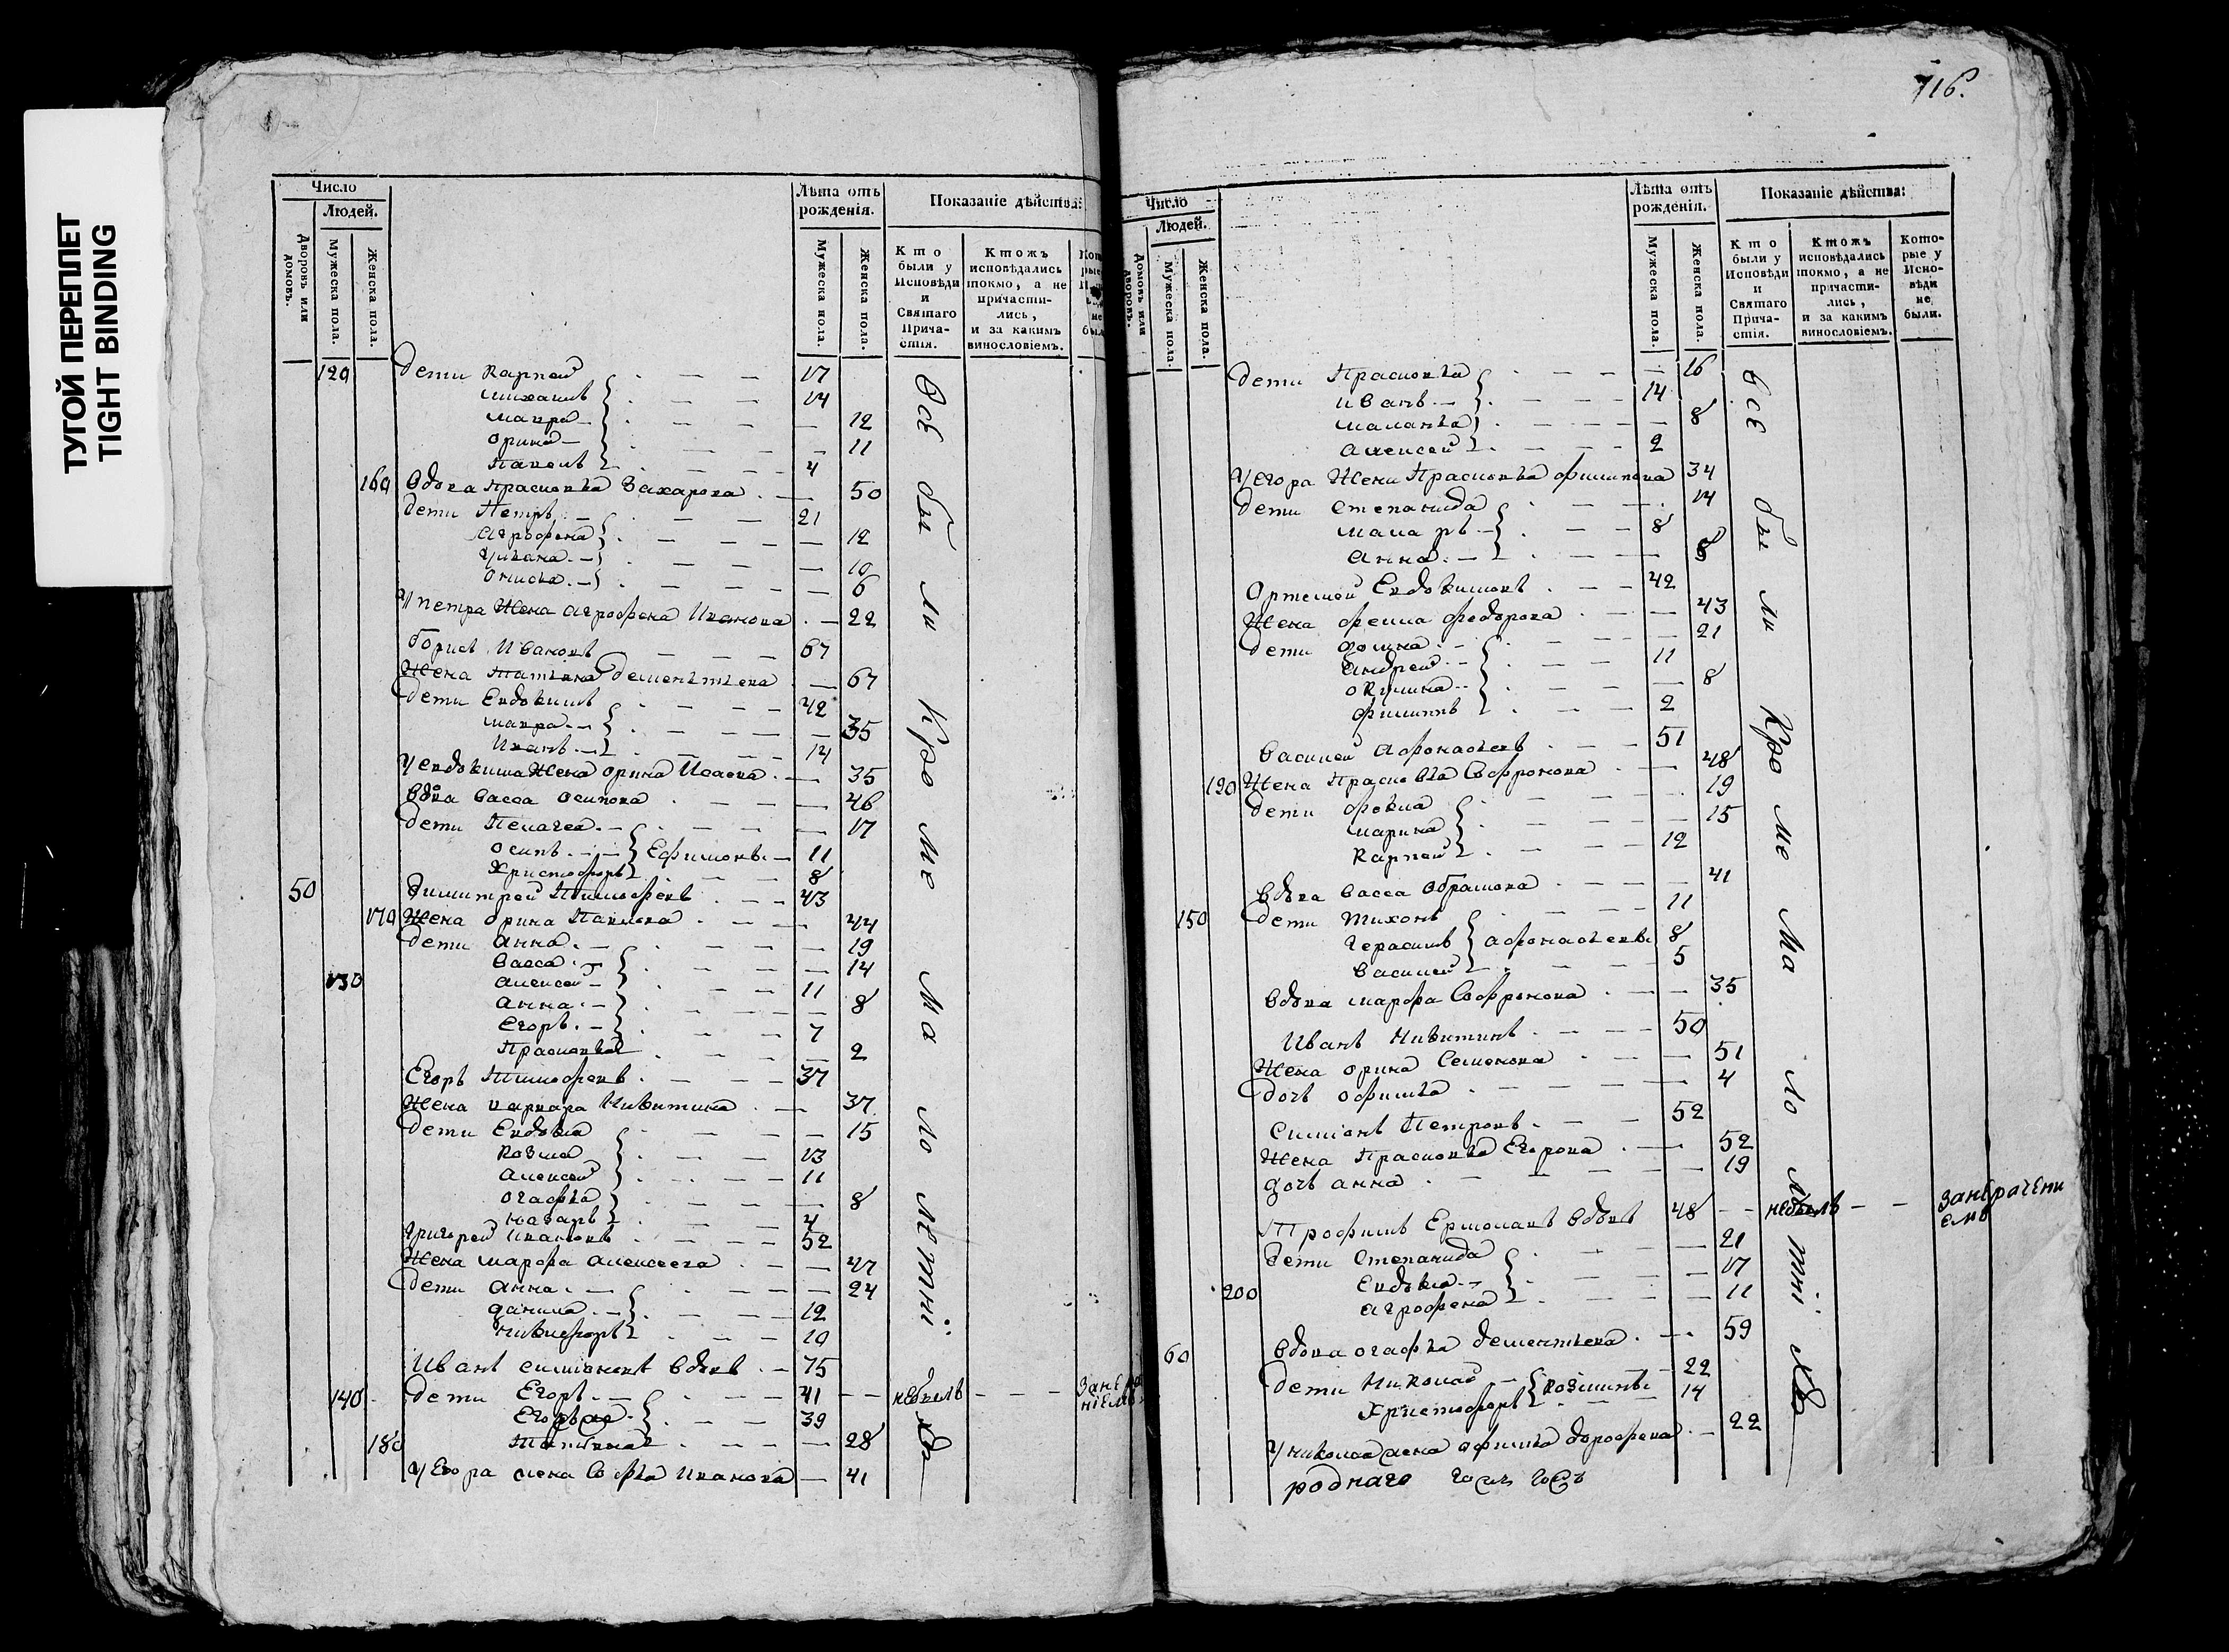 ТУГОЙ ПЕРЕПЛЕТ
TIGHT BINDING
Число
Людей.
Дворовъ или домовъ.
Мужеска пола.
Женска пола.
Лѣта отъ рожденія.
Мужеска пола.
Женска пола.
Показаніе дѣйства:
Кто были у Исповѣди и Святаго Прича-стія.
Ктожъ исповѣдались токмо, а не причасти-лись, и за какимъ винословіемъ.
120 дети Карпей 17
Михаилъ 14
Мавра 12
Орина 11
Павелъ 4
160 вдова Прасковья Захарова 50
дети Петръ 21
Агрофена 12
Ульяна 10
Онисья 6
У Петра жена Агрофена Иванова 22
Борисъ Ивановъ 67
Жена Татьяна Дементьева 67
дети Евдокимъ 42
Мавра 35
Иванъ 14
У Евдокима жена Орина Исаева 35
вдова Васса Осипова 46
дети Пелагея 17
Осипъ Ефимовы 11
Христофоръ 8
50 Димитрей Тимофеевъ 43
170 Жена Орина Павлова 44
дети Анна 19
Васса 14
130 Алексей 11
Анна 8
Егоръ 7
Прасковья 2
Егоръ Тимофеевъ 37
Жена Варвара Никитина 37
дети Евдокия 15
Козма 13
Алексей 11
Огафья 8
Назаръ 4
Григорей Ивановъ 52
Жена Марфа Алексеева 47
дети Анна 24
Данила 12
Никифоръ 10
Иванъ Симіоновъ вдовъ 75
140 дети Егоръ 41 небылъ
Егоръ 39
180 Татьяна 28
У Егора жена Софья Иванова 41
Всѣ были кроме малолетніхъ
716.
Число
Людей.
Домовъ или дворовъ.
Мужеска пола.
Женска пола.
Лѣта отъ рожденія.
Мужеска пола.
Женска пола.
Показаніе дѣйства:
Кто были у Исповѣди и Святаго Прича-стія.
Ктожъ исповѣдались токмо, а не причасти-лись, и за какимъ винословіемъ.
Кото-рые у Испо-вѣди не были.
дети Прасковья 16
Иванъ 14
Маланья 8
Алексей 2
У Егора жена Прасковья Филипова 34
дети Степанида 14
8
Анна 8
Ортемей Евдокимовъ 42
Жена Фекла Федорова 43
дети Домна 21
Андрей 11
Окулина 8
Филиппъ 2
Василей Афонасьевъ 51
190 Жена Прасковья Софронова 48
дети Фекла 19
Марина 15
Карпей 12
вдова Васса Обрамова 41
150 дети Тихонъ 11
Герасимъ Афонасьевы 8
Василей 5
вдова Марфа Софронова 35
Иванъ Никитинъ 50
Жена Орина Семенова 51
дочь Офимья 4
Симіонъ Петровъ 52
Жена Прасковья Егорова 52
дочь Анна 19
Трофимъ Ермолаевъ вдовъ 48 небылъ
дети Степанида 21
Евдокия 17
200 Агрофена 11
вдова Огафья Дементьева 59
60 дети Николай Козмины 22
Христофоръ 14
У Николая жена Офимья Дорофеева 22
роднаго
Всѣ были кроме малолѣтніхъ